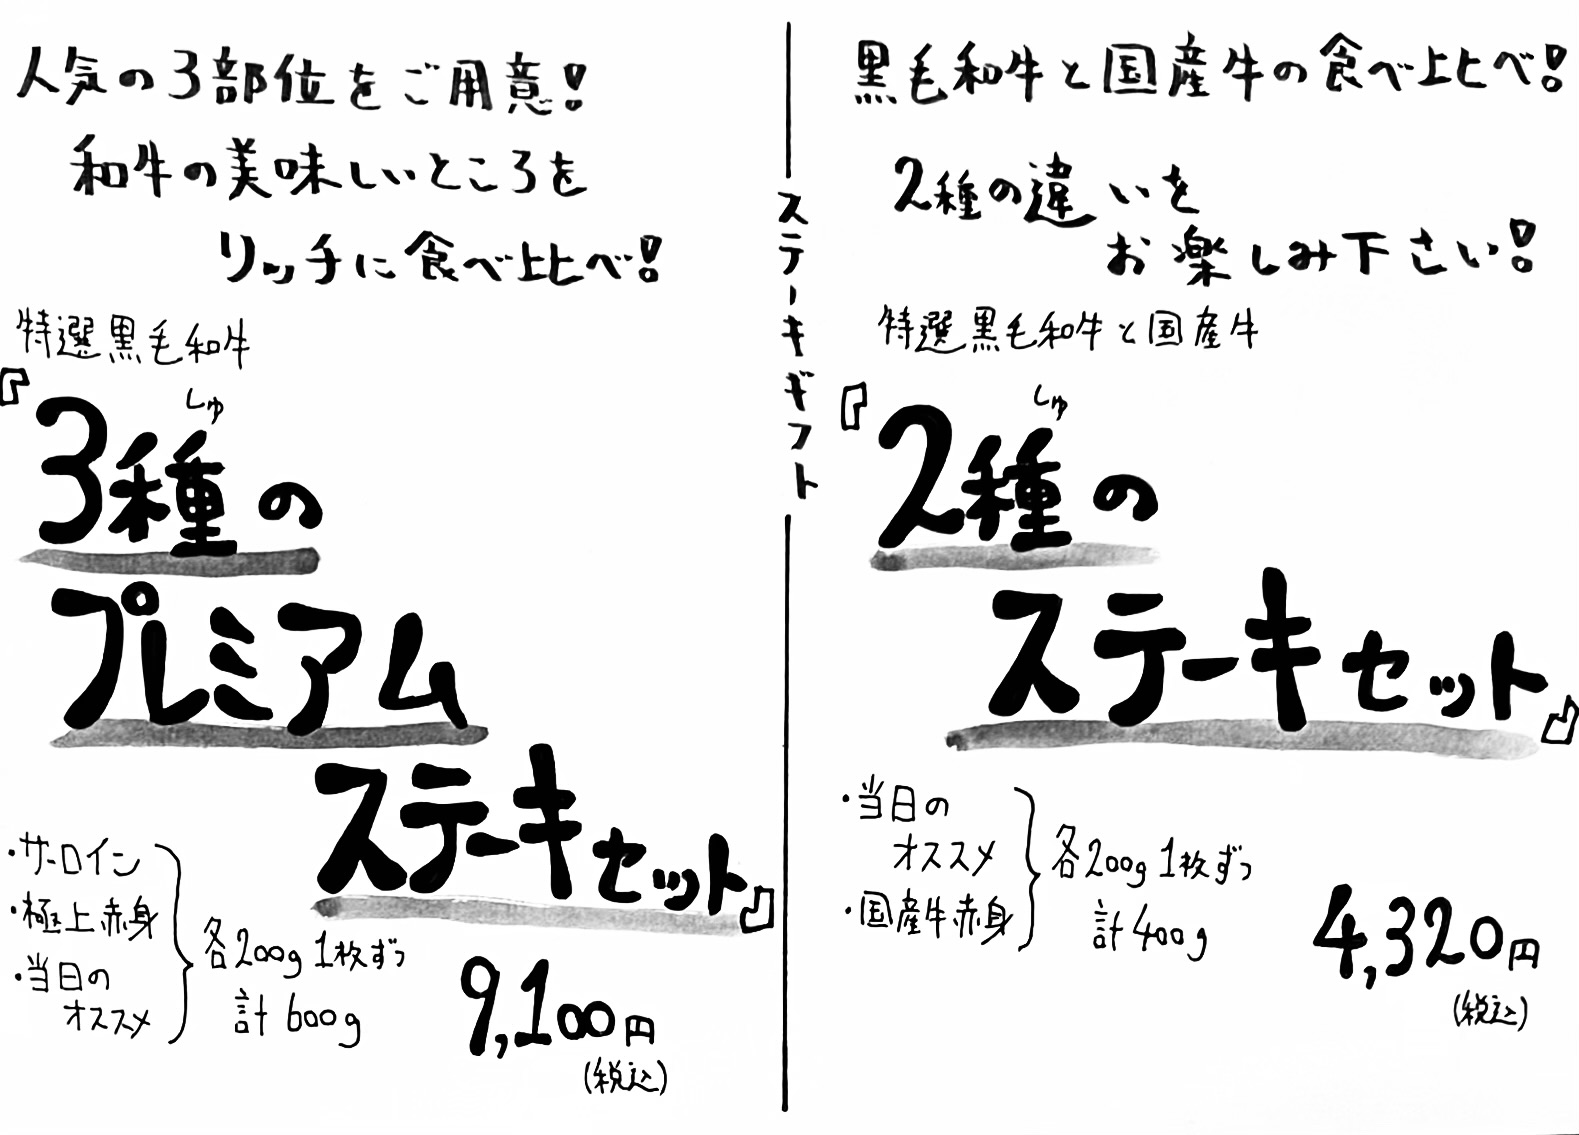 人気の3部位をご用意!
和牛の美味しいところを
リッチに食べ比べ!
特選黒毛和牛
『3種の
しゅ
プレミアム
ステーキセット』
・サーロイン
・極上赤身
・当日の
オススメ
各200g 1枚ずつ
計600g
9,100円
(税込)
ステーキギフト
黒毛和牛と国産牛の食べ比べ!
2種の違いを
お楽しみ下さい!
特選黒毛和牛と国産牛
『2種の
しゅ
ステーキセット』
・当日の
オススメ
・国産牛赤身
各200g 1枚ずつ
計400g
4,320円
(税込)